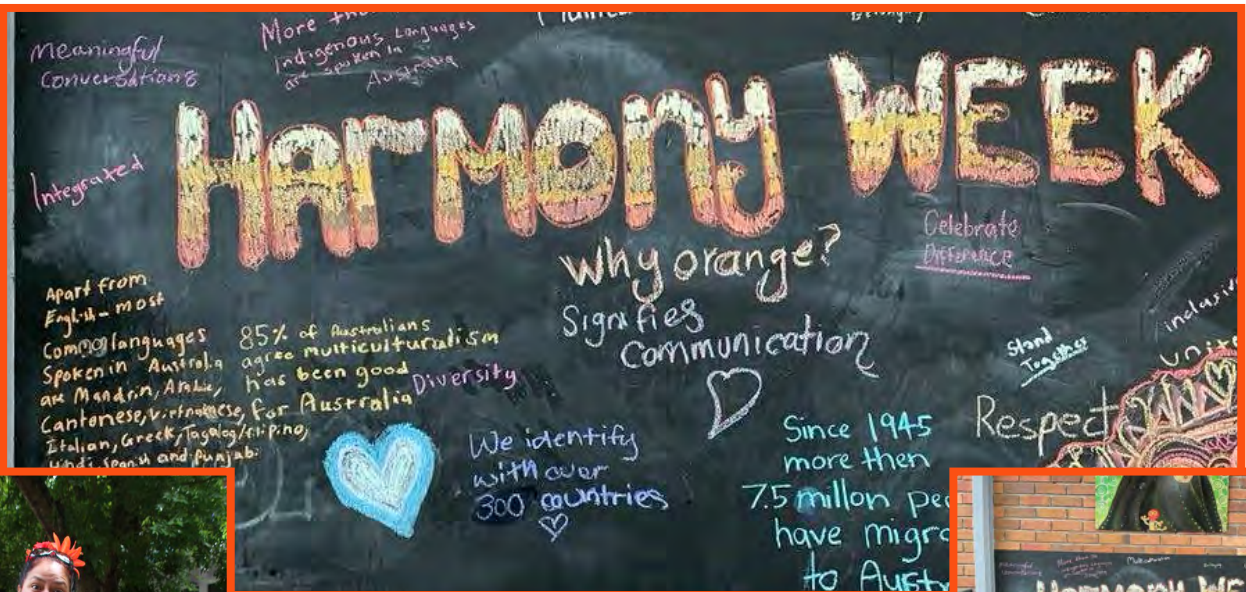 Meaningful
Conversations
More tha
Indigenous Languages
are spoken in
Australia
HARMONY WEEK
Integrated
why orange?
Signifies
Communication
Celebrate
Difference
Apart from
English - most
Common languages
Spoken in Australia
are Mandrin, Arabic,
Cantonese, Vietnamese,
Italian, Greek, Tagalog/Filipino,
Hindi, Spanish and Punjabi
85% of Australians
agree multiculturalism
has been good
for Australia
Diversity
We identify
with over
300 countries
Since 1945
more then
7.5 millon peo
have migra
to Austr
Stand
Together
inclusiv
unite
Respect
HARMONY WE